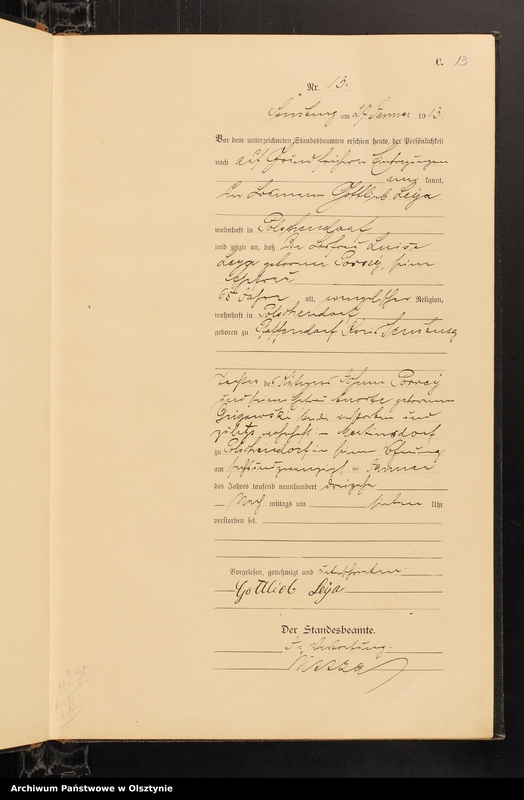 C. 13
Nr. 13.
Sensburg am 27 Januar 1913.
Vor dem unterzeichneten Standesbeamten erschien heute, der Persönlichkeit
nach auf Grund früherer Eintragungen
aner kannt,
Der Losmann Gottlieb Leya
wohnhaft in Polschendorf
und zeigte an, daß Die Losfrau Luise
Leya geborene seine
Ehefrau
65 Jahre alt, evangelischer Religion,
wohnhaft in Polschendorf
geboren zu Kreis Sensburg
Tochter des Johann
und seiner Ehefrau geborenen
beide verstorben und
zuletzt wohnhaft in Mertinsdorf
zu Polschendorf in seiner Wohnung
am sechsundzwanzigsten Januar
des Jahres tausend neunhundert dreizehn
Nach mittags um sieben Uhr
verstorben sei.
Vorgelesen, genehmigt und unterschrieben.
Gottlieb Leya
Der Standesbeamte.
In Vertretung.
Archiwum Państwowe w Olsztynie